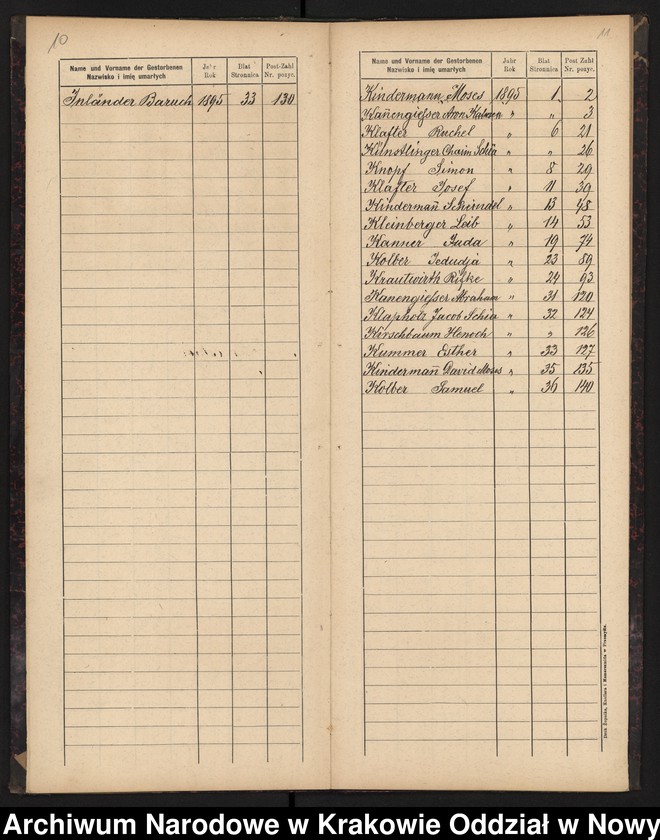 10
Name und Vorname der Gestorbenen
Nazwisko i imię umarłych
Jahr
Rok
Blat
Stronnica
Post-Zahl
Nr. pozyc.
Inländer Baruch 1895 33 130
11
Name und Vorname der Gestorbenen
Nazwisko i imię umarłych
Jahr
Rok
Blat
Stronnica
Post Zahl
Nr. pozyc.
Kindermann Moses 1895 1 2
Kan̄engießer Aron Kalmen " " 3
Klafter Ruchel " 6 21
Künstlinger Chaim Schia " " 26
Knopf Simon " 8 29
Klafter Josef " 11 39
Kinderman̄ Scheindel " 13 48
Kleinberger Leib " 14 53
Kanner Juda " 19 74
Kolber Jedudja " 23 89
Krautwirth Rifke " 24 93
Kanengießer Abraham " 31 120
Klapholz Jacob Schia " 32 124
Kirschbaum Henoch " " 126
Kummer Esther " 33 127
Kinderman̄ David Moses " 35 135
Kolber Samuel " 36 140
Archiwum Narodowe w Krakowie Oddział w Nowy